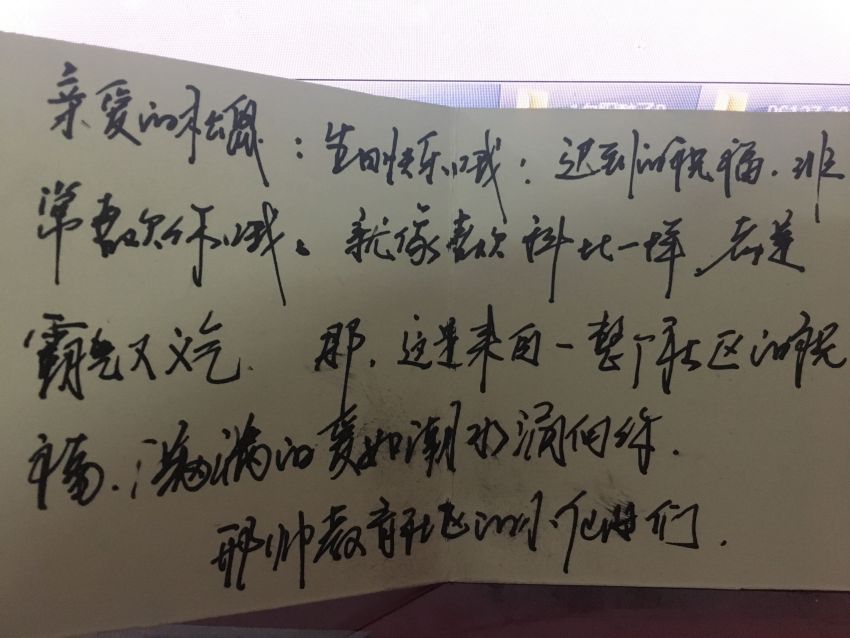 亲爱的社鼠：生日快乐哦！迟到的祝福.非
常喜欢你哦。就像喜欢科比一样，都是
霸气又义气.那，这是来自一整个社区的祝
福.满满的爱如潮水涌向你.
邢帅教育社区的小伙伴们.